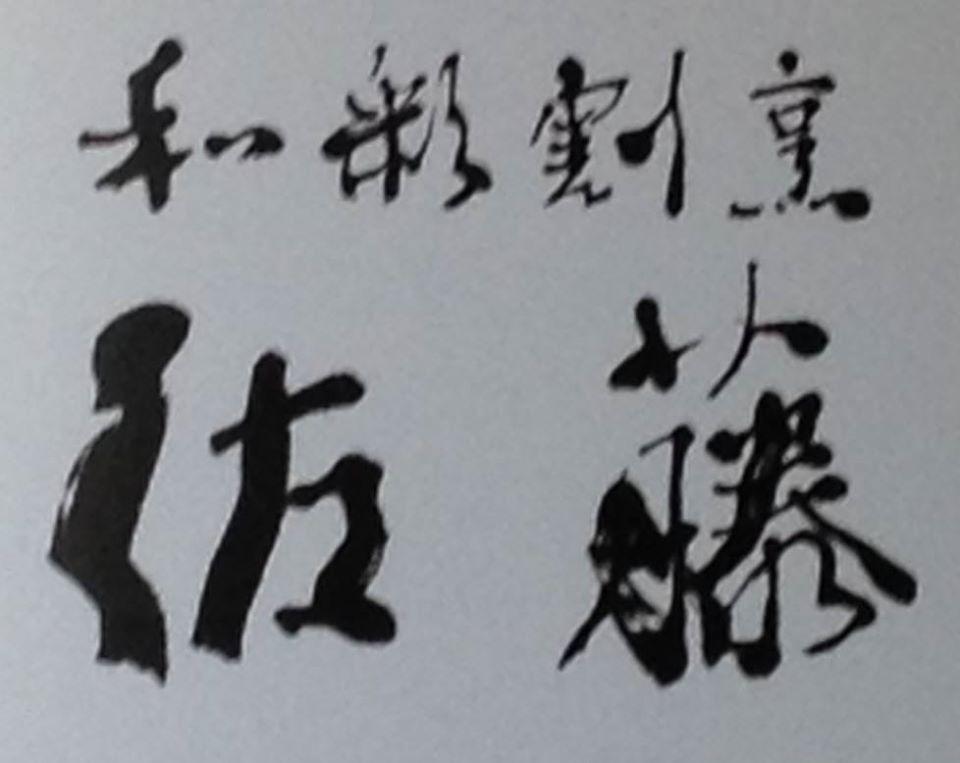 和彩割烹
佐藤